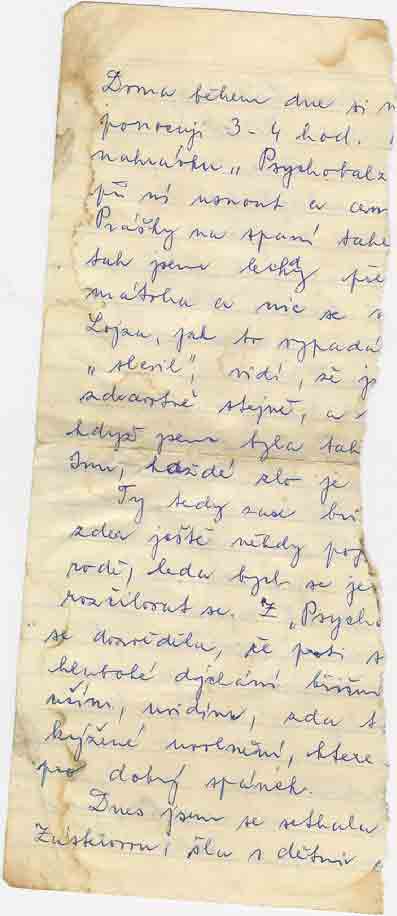 Doma během dne si n
ponocuji 3-4 hod.
nahrávku „Psychobalz
při ní usnout a
Prášky na spaní také
tak jsem
mátoha a nic se
Lojza, jak to vypadá
„slevil", vidí, že j
zdravotně stejně, a
když jsem byla tak
Inu, každé zlo je
Ty tedy zase
zda ještě někdy
rodě, leda bych se je
rozčilovat se. Z „Psycho
se dozvěděla, že proti s
hluboké dýchání břišní
učím, uvidím, zda t
kýžené uvolnění, které
pro dobrý spánek.
Dnes jsem se setkala
šla s dětmi